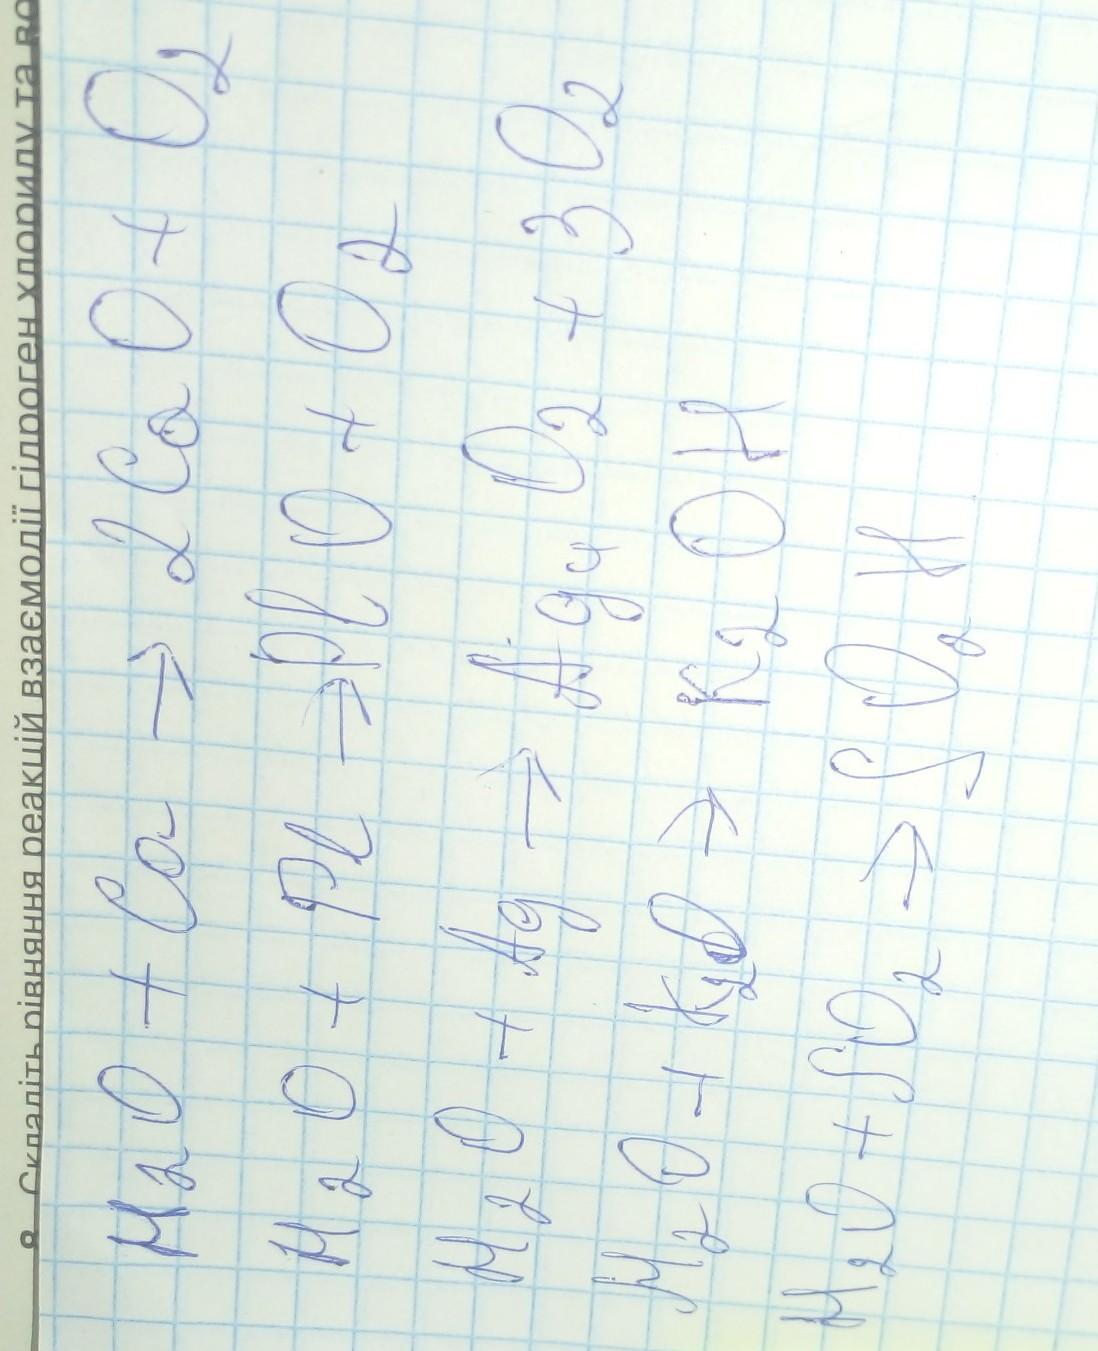 8 Складіть рівняння реакцій взаємодії гідроген хлориду та
H2O + Ca → 2CaO + O2
H2O + Pl → PlO + O2
H2O + Ag → Ag4O2 + 3O2
H2O + K2O → K2OH
H2O + SO2 → SO2H